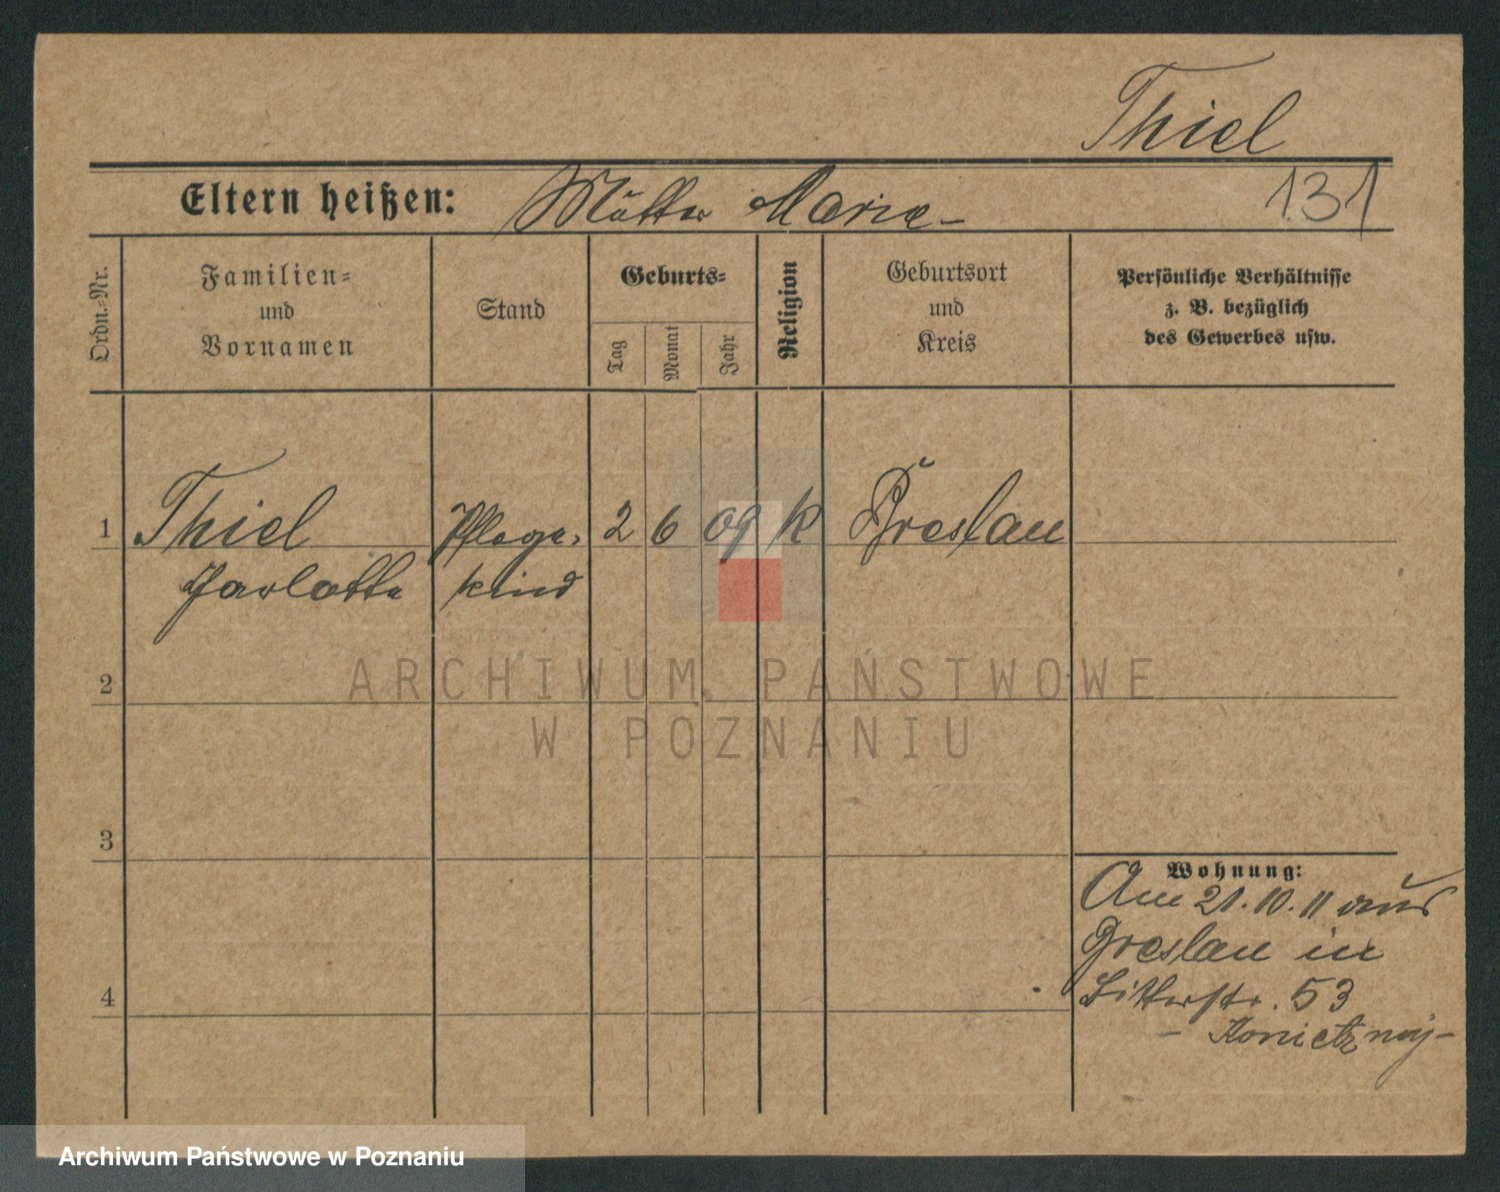 Thiel
Eltern heißen: Mutter Maria-
131
Ordn.-Nr.
Familien-
und
Vornamen
Stand
Geburts-
Tag
Monat
Jahr
Religion
Geburtsort
und
Kreis
Persönliche Verhältnisse
z. B. bezüglich
des Gewerbes usw.
1 Thiel Pflege- 2 6 09 k Breslau
kind
2
ARCHIWUM PAŃSTWOWE
W POZNANIU
3
Wohnung:
Am 21.10.11 aus
Breslau in
4
53
Archiwum Państwowe w Poznaniu